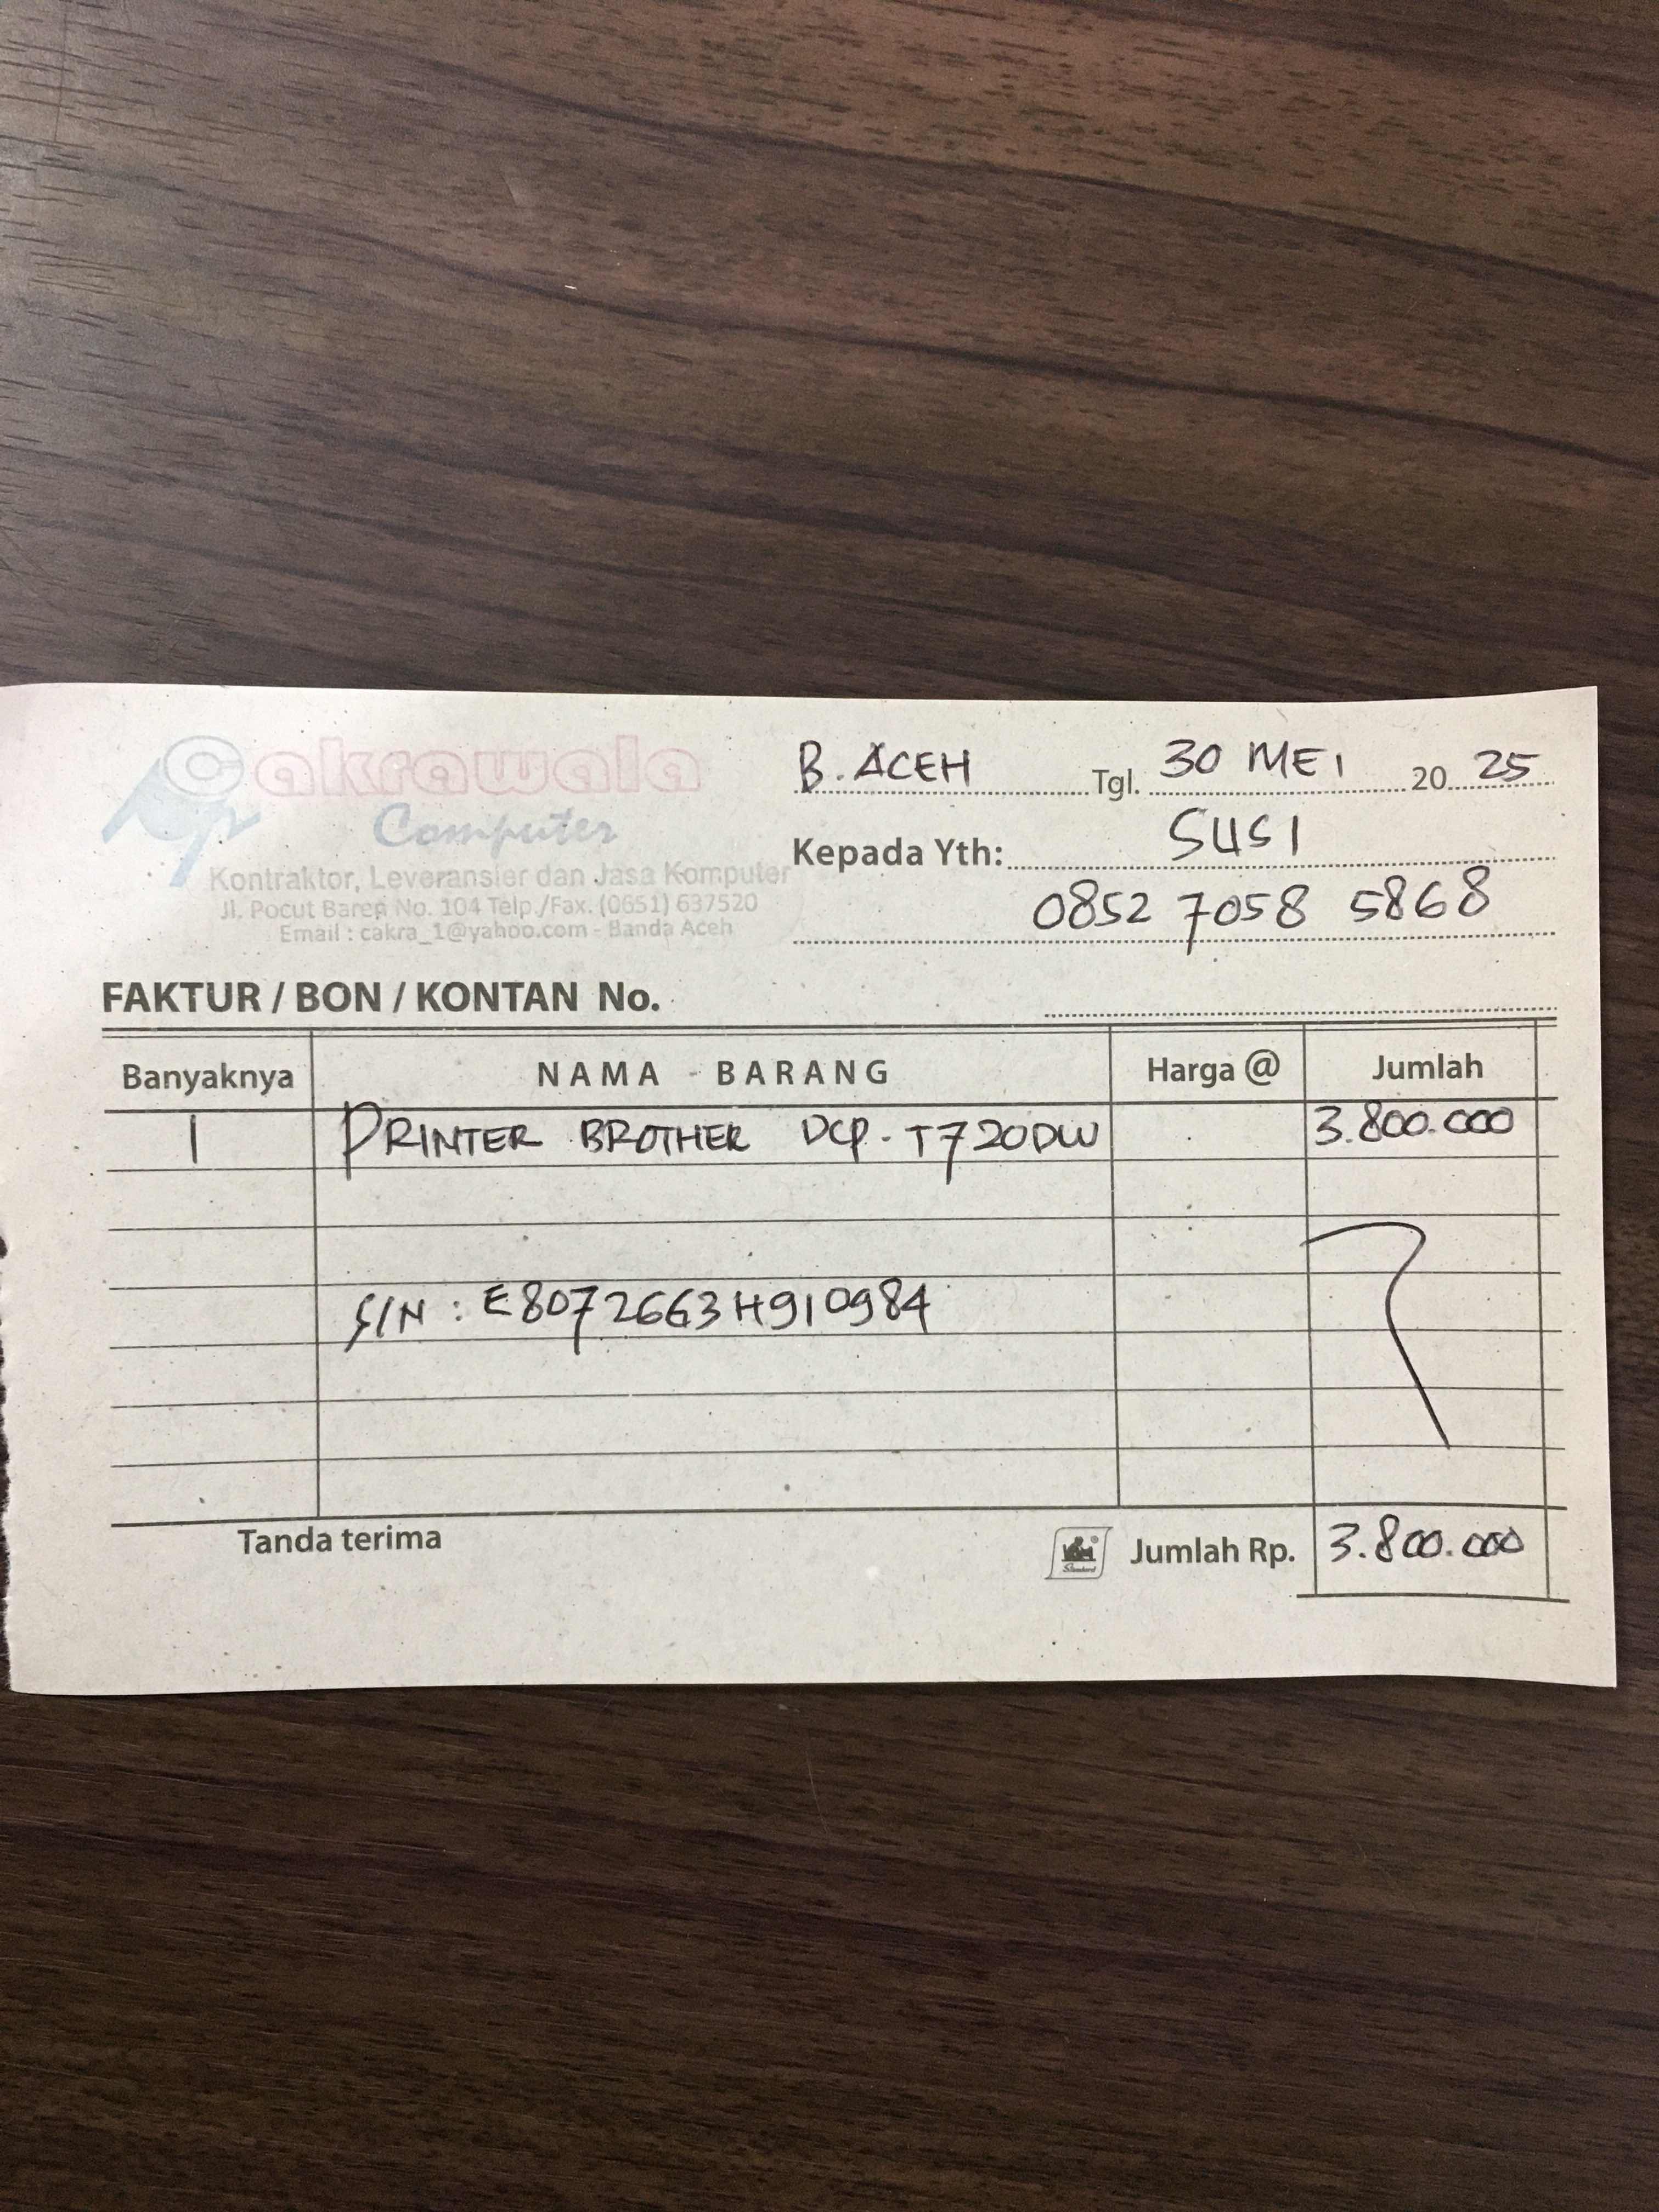 Cakrawala
Computer
Kontraktor, Leveransier dan Jasa Komputer
Jl. Pocut Baren No. 104 Telp./Fax. (0651) 637520
Email : cakra_1@yahoo.com - Banda Aceh
B. ACEH Tgl. 30 MEI 20 25
Kepada Yth: SUSI
0852 7058 5868
FAKTUR / BON / KONTAN No.
Banyaknya NAMA - BARANG Harga @ Jumlah
1 PRINTER BROTHER DCP-T720DW 3.800.000
S/N : E8072663H910984
Tanda terima Standard Jumlah Rp. 3.800.000